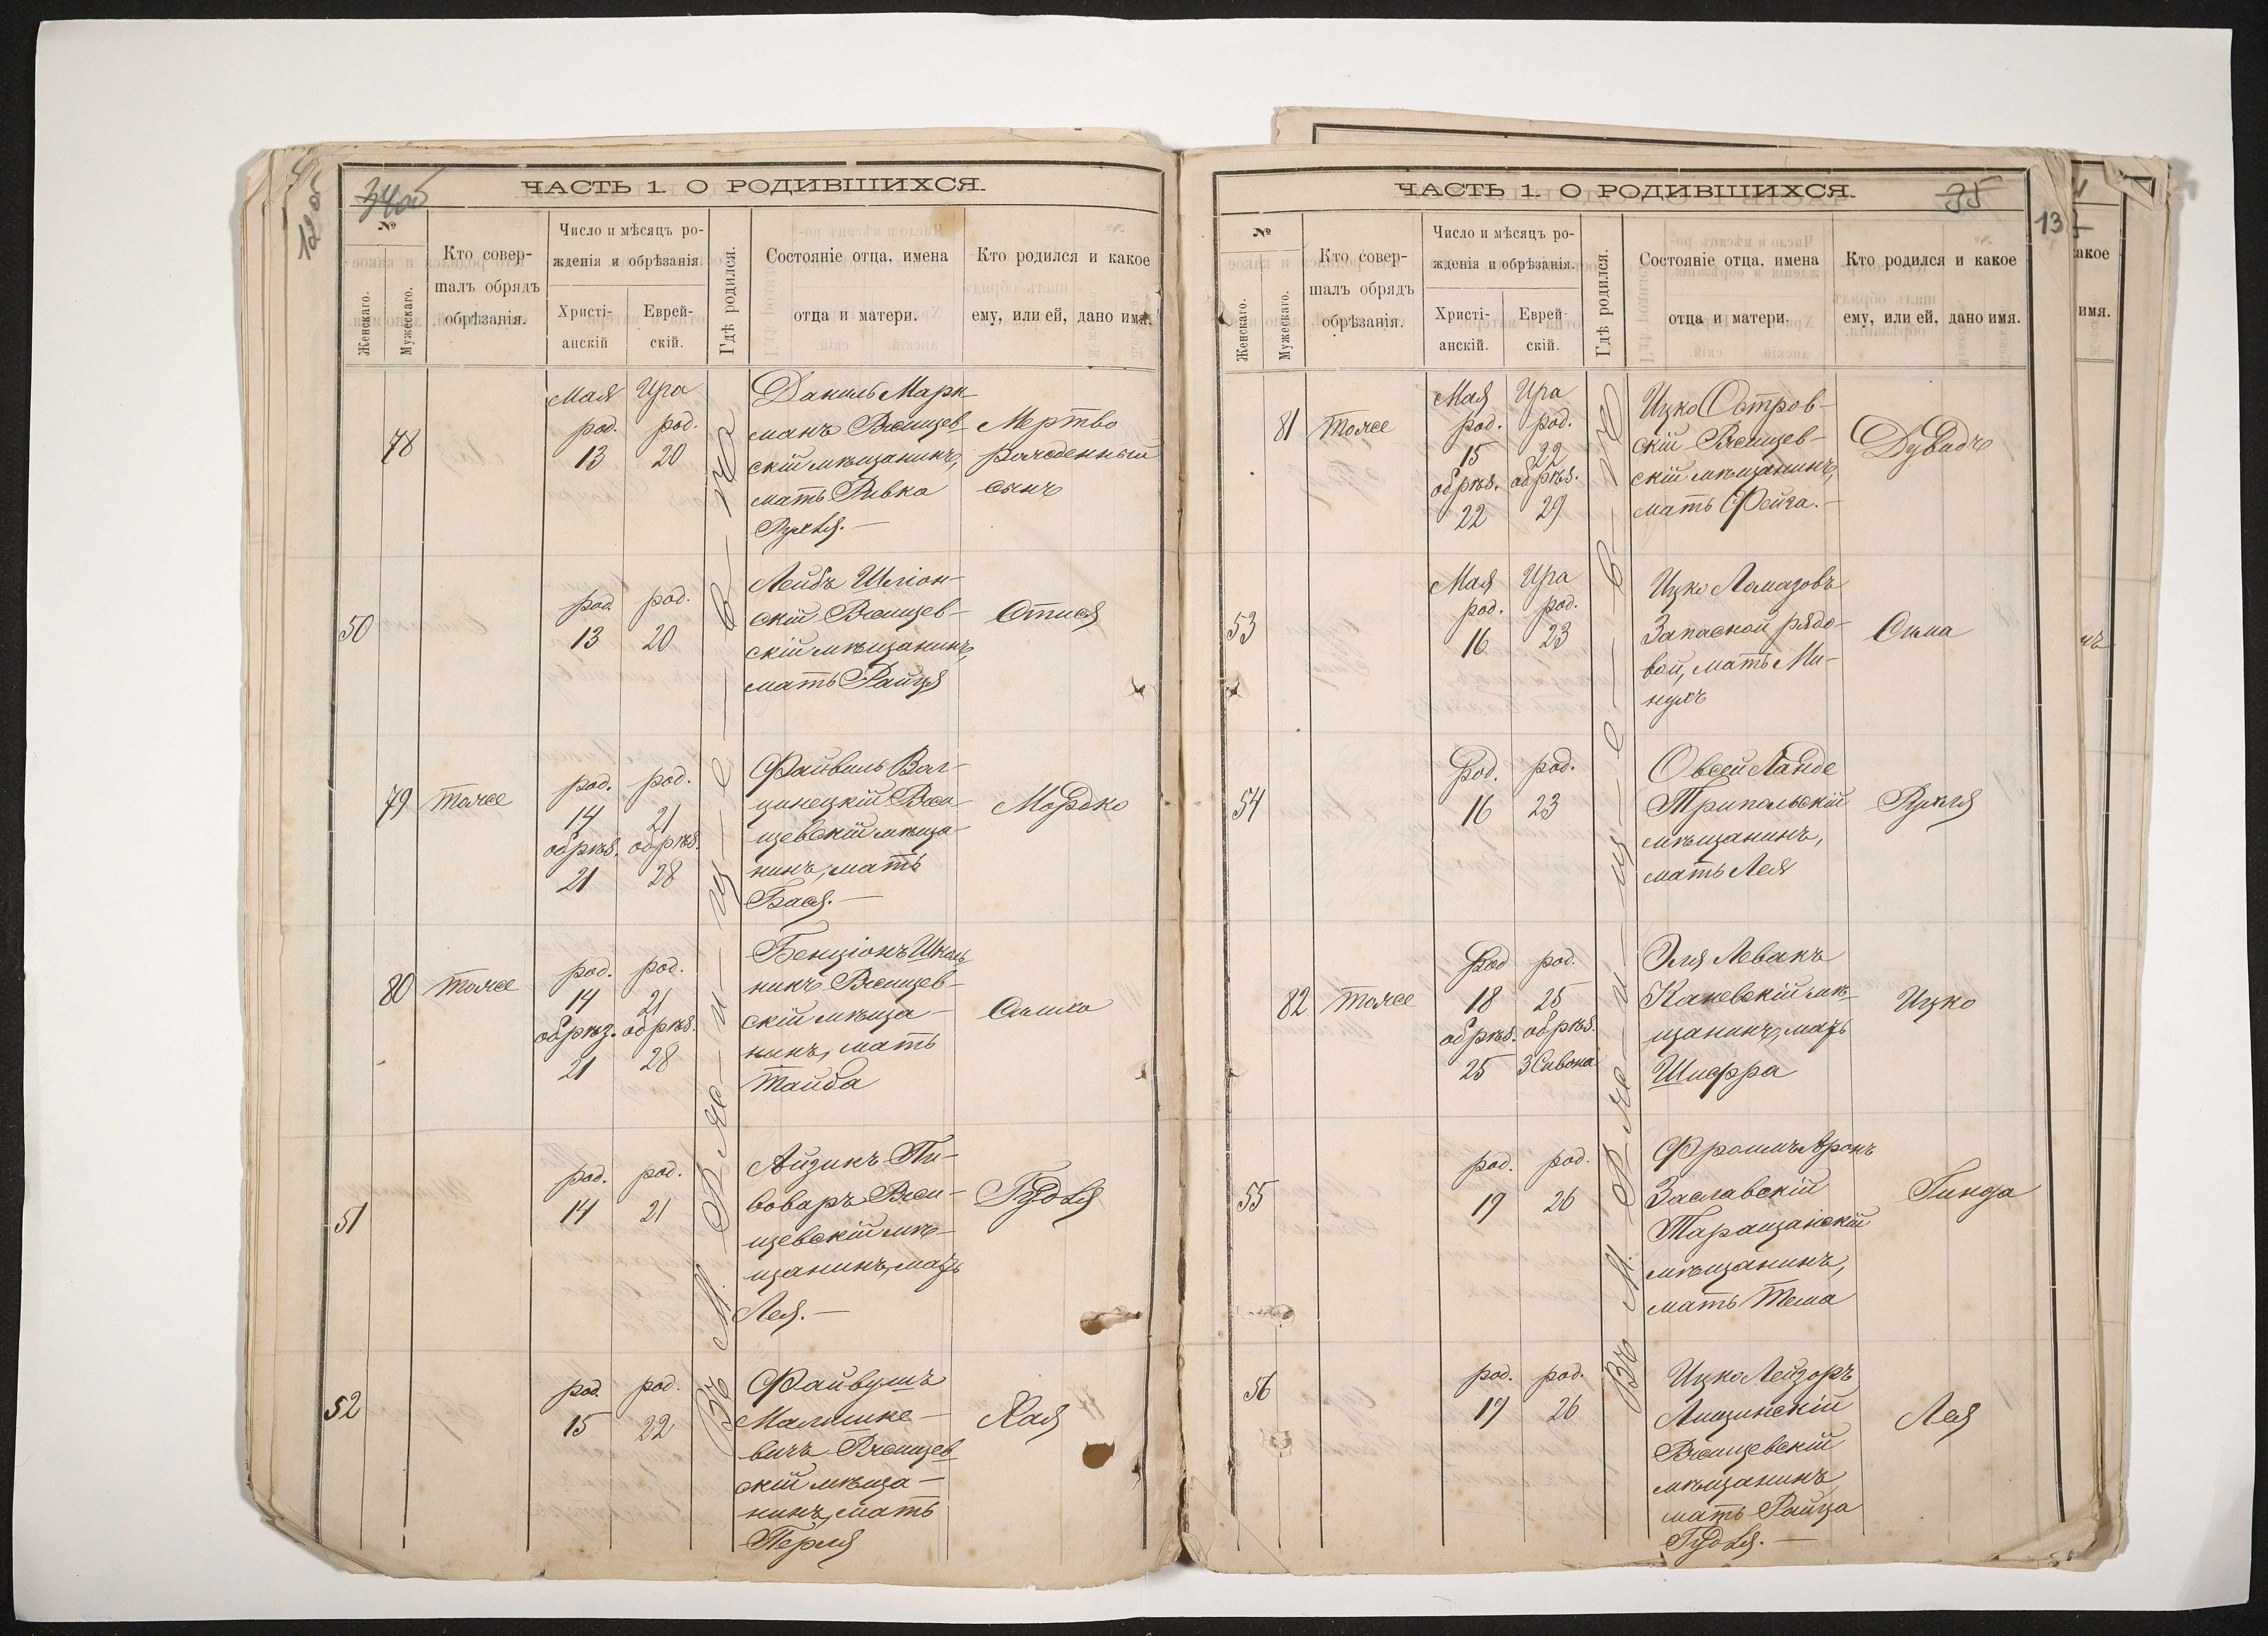 12 об
34 об
ЧАСТЬ 1. О РОДИВШИХСЯ.
№
Женскаго.
Мужескаго.
Кто совер-
шалъ обрядъ
обрѣзанія.
Число и мѣсяцъ ро-
жденія и обрѣзанія.
Христі-
анскій
Еврей-
скій.
Гдѣ родился.
Состояніе отца, имена
отца и матери.
Кто родился и какое
ему, или ей, дано имя.
Въ М. Ржищевѣ
78
Мая Ира
род. род.
13 20
Даниль Марк-
манъ Ржищев-
скій мѣщанинъ,
мать Ривка
Рухля.—
Мертво
рожденный
сынъ
50
род. род.
13 20
Лейбъ
скій Ржищев-
скій мѣщанинъ,
мать Райця
79 тоже
род. род.
14 21
обрѣз. обрѣз.
21 28
Файвель Вол-
Ржи-
щевскій мѣща-
нинъ, мать
Бася.—
Мордко
80 тоже
род. род.
14 21
обрѣз. обрѣз.
21 28
Бенціонъ Школь
никъ Ржищев-
скій мѣща-
нинъ, мать
Тайба
51
род. род.
14 21
Айзикъ Пи-
воваръ Ржи-
щевскій мѣ-
щанинъ, мать
Лея.—
Гудля
52
род. род.
15 22
Файвушъ
вичъ Ржищев
скій мѣща-
нинъ, мать
Перля
Хая
35
13
ЧАСТЬ 1. О РОДИВШИХСЯ.
№
Женскаго.
Мужескаго.
Кто совер-
шалъ обрядъ
обрѣзанія.
Число и мѣсяцъ ро-
жденія и обрѣзанія.
Христі-
анскій.
Еврей-
скій.
Гдѣ родился.
Состояніе отца, имена
отца и матери.
Кто родился и какое
ему, или ей, дано имя.
Въ М. Ржищевѣ
81 тоже
Мая Ира
род. род.
15 22
обрѣз. обрѣз.
22 29
Ицко Остров-
скій Ржищев-
скій мѣщанинъ,
мать Фейга.—
Дувидъ
53
Мая Ира
род. род.
16 23
Ицко Ломазовъ
Запасной рядо-
вой, мать Ми-
нухъ
Сима
54
Род. род.
16 23
Овсей Ланде
Трипольскій
мѣщанинъ,
мать Лея
Рухля
82 тоже
Род род.
18 25
обрѣз. обрѣз.
25 3 Сивона
Эля Левакъ
Каневскій мѣ-
щанинъ, мать
Шифра
Ицко
55
род. род.
19 26
Фроимъ Аронъ
Заславскій
Таращанскій
мѣщанинъ,
мать Тема
Гинда
56
род. род.
19 26
Ицко Лейзоръ
Ржищевскій
мѣщанинъ,
мать Райца
Гудля.—
Лея
акое
имя.